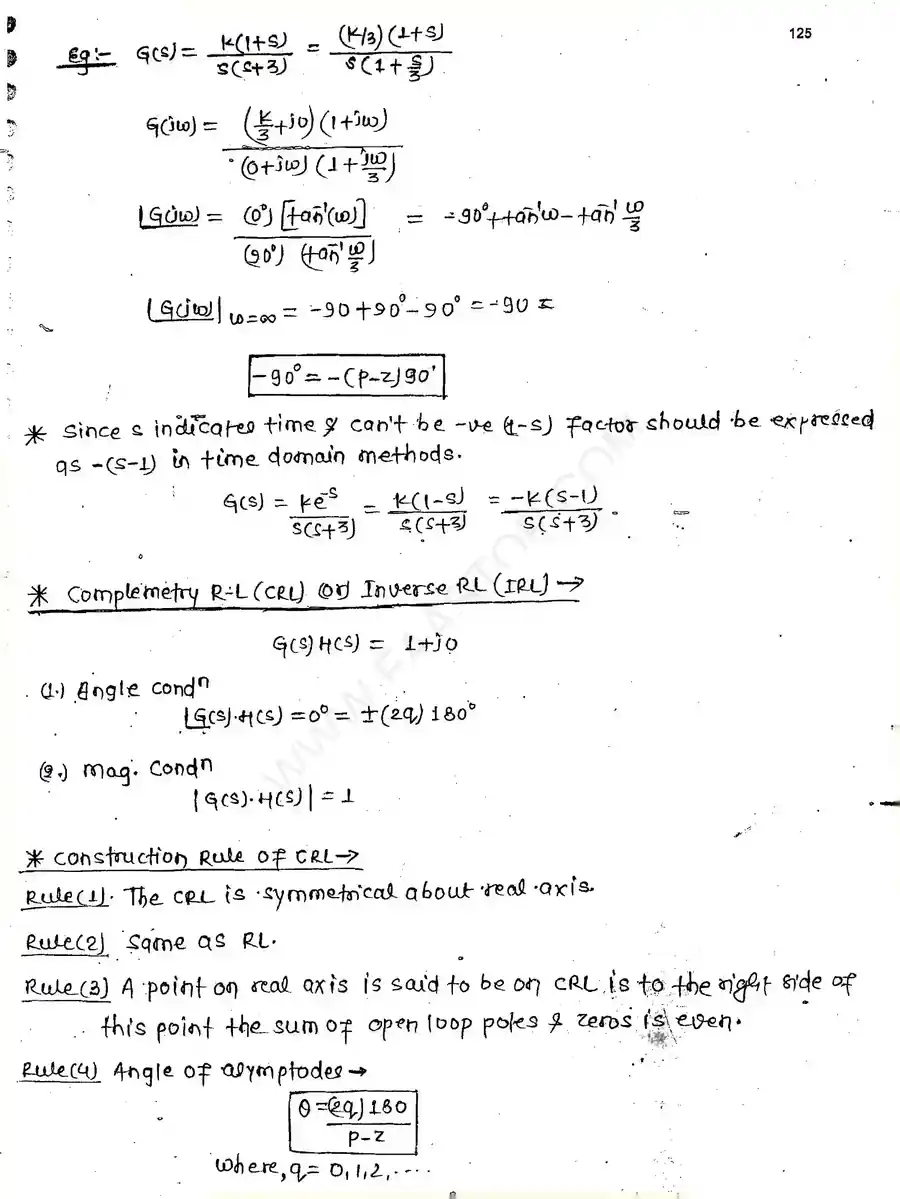 125
Eg:- G(s) = K(1+s) / s(s+3) = (K/3)(1+s) / s(1+s/3)
G(jω) = (K/3+j0)(1+jω) / (0+jω)(1+jω/3)
∠G(jω) = (0°)[tan⁻¹(ω)] / (90°)(tan⁻¹ω/3) = -90°+tan⁻¹ω-tan⁻¹ω/3
∠G(jω)|ω=∞ = -90+90°-90° = -90 =
-90° = -(P-Z)90°
* Since s indicates time & can't be -ve (1-s) factor should be expressed
as -(s-1) in time domain methods.
G(s) = Ke^-s / s(s+3) = K(1-s) / s(s+3) = -K(s-1) / s(s+3).
* Complemetry R-L (CRL) or Inverse RL (IRL) →
G(s)H(s) = 1+j0
(1.) Angle condⁿ
∠G(s).H(s) = 0° = ±(2q)180°
(2.) Mag. Condⁿ
|G(s).H(s)| = 1
* Construction Rule of CRL→
Rule(1). The CRL is symmetrical about real axis.
Rule(2) Same as RL.
Rule(3) A point on real axis is said to be on CRL is to the right side of
this point the sum of open loop poles & zeros is even.
Rule(4) Angle of asymptodes →
θ = (2q)180 / P-Z
where, q = 0,1,2,....